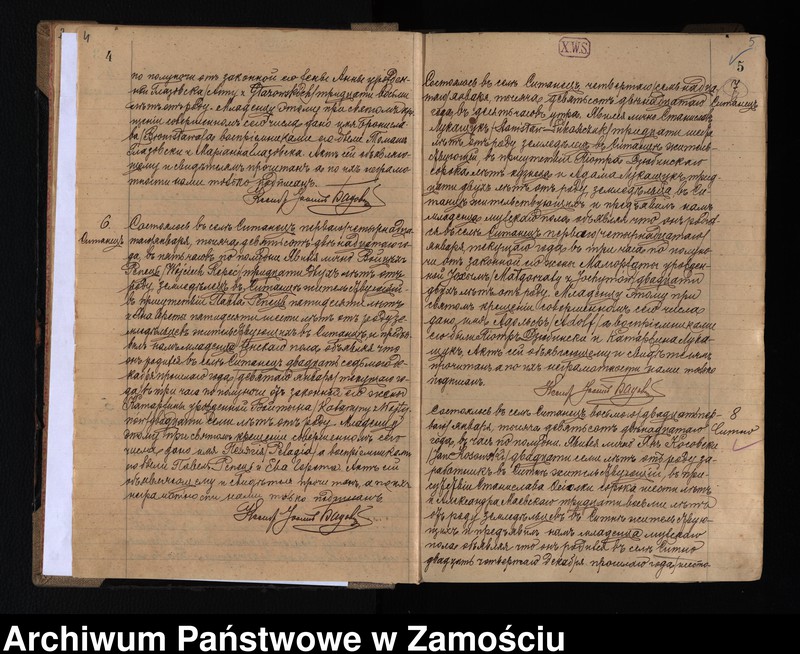 4
по полуночи отъ законной его жены Анны урожден-
тридцати восьми
лѣтъ отъ роду. Младенцу этому при святомъ кре-
щеніи совершенномъ сего числа дано имя Брониславъ
/Bronisława/ а воспріемниками его были
и Маріанна Глазовска. Актъ сей объявляю-
щему и свидѣтелямъ прочитанъ а по ихъ неграмо-
тности нами только подписанъ.
6.
Ситанецъ
Состоялось въ селѣ Ситанецъ перваго /четырнадца-
таго/ января, тысяча девятьсотъ двѣнадцатаго го-
да, въ пять часовъ по полудни. Явился лично Войцѣхъ
/Wojciech тридцати двухъ лѣтъ отъ
роду, земледѣлецъ въ Ситанцѣ жительствующій
въ присутствіи Павла пятидесяти лѣтъ
пятидесяти шести лѣтъ отъ роду зе-
мледѣльцевъ жительствующихъ въ Ситанцѣ и предъя-
вилъ намъ младенца женскаго пола объявляя что
онъ родился въ селѣ Ситанецъ двадцать седьмого де-
кабря прошлаго года /девятаго января/ текущаго го-
да въ три часа по полуночи отъ законной его жены
Катаржины урожденной
двадцати семи лѣтъ отъ роду. Младенцу
этому при святомъ крещеніи совершенномъ сего
числа, дано имя Пелагія /Pelagia/ а воспріемниками
его были Павелъ и Ева Актъ сей
объявляющему и свидѣтелямъ прочитанъ, а по ихъ
неграмотности нами только подписанъ.
X.W.S.
5
5
7
Ситанецъ
Состоялось въ селѣ Ситанецъ четвертаго /семнадца-
таго/ января, тысяча девятьсотъ двѣнадцатаго
года, въ десять часовъ утра. Явился лично Станиславъ
Лукащукъ тридцати
лѣтъ отъ роду земледѣлецъ въ Ситанцѣ житель-
ствующій, въ присутствіи Піотра
сорока лѣтъ и Адама Лукащукъ трид-
цати двухъ лѣтъ отъ роду, земледѣльцевъ въ Си-
танцѣ жительствующихъ и предъявилъ намъ
младенца мужескаго пола объявляя что онъ родил-
ся въ селѣ Ситанецъ перваго /четырнадцатаго/
января, текущаго года въ три часа по полуно-
чи отъ законной его жены Малгоржаты урожден-
ной двадцати
двухъ лѣтъ отъ роду. Младенцу этому при
святомъ крещеніи совершенномъ сего числа
дано имя Адольфъ /Adolf/ а воспріемниками
его были Піотръ и Катаржина Лука-
щукъ. Актъ сей объявляющему и свидѣтелямъ
прочитанъ а по ихъ неграмотности нами только
подписанъ.
8
Ситно
Состоялось въ селѣ Ситанецъ восьмого /двадцать пер-
ваго/ января, тысяча девятьсотъ двѣнадцатаго
года, въ часъ по полудни. Явился лично Янъ Косовски
/Jan Kosowski/ двадцати семи лѣтъ отъ роду за-
работникъ въ Ситнѣ жительствующій, въ при-
сутствіи Станислава сорока шести лѣтъ
и Александра Маевскаго тридцати лѣтъ
отъ роду земледѣльцевъ въ Ситнѣ жительствую-
щихъ и предъявилъ намъ младенца мужескаго
пола объявляя что онъ родился въ селѣ Ситно
двадцать четвертаго декабря прошлаго года /шесто-
Archiwum Państwowe w Zamościu